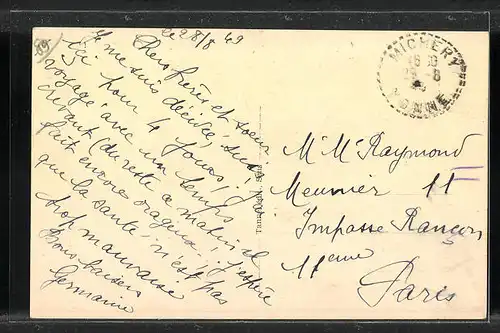 69
le 28/8 49
Chers frères et sœur
Je me suis décidée, suis
ici pour 4 jours, j'
voyagé avec un temps
crevant (du reste ce matin il
fait encore orageux... j'espère
que la santé n'est pas
trop mauvaise
Bons baisers
Germaine
MICHERY
YONNE
M Mme Raymond
Meunier 11
Impasse Rançon
11eme
Paris